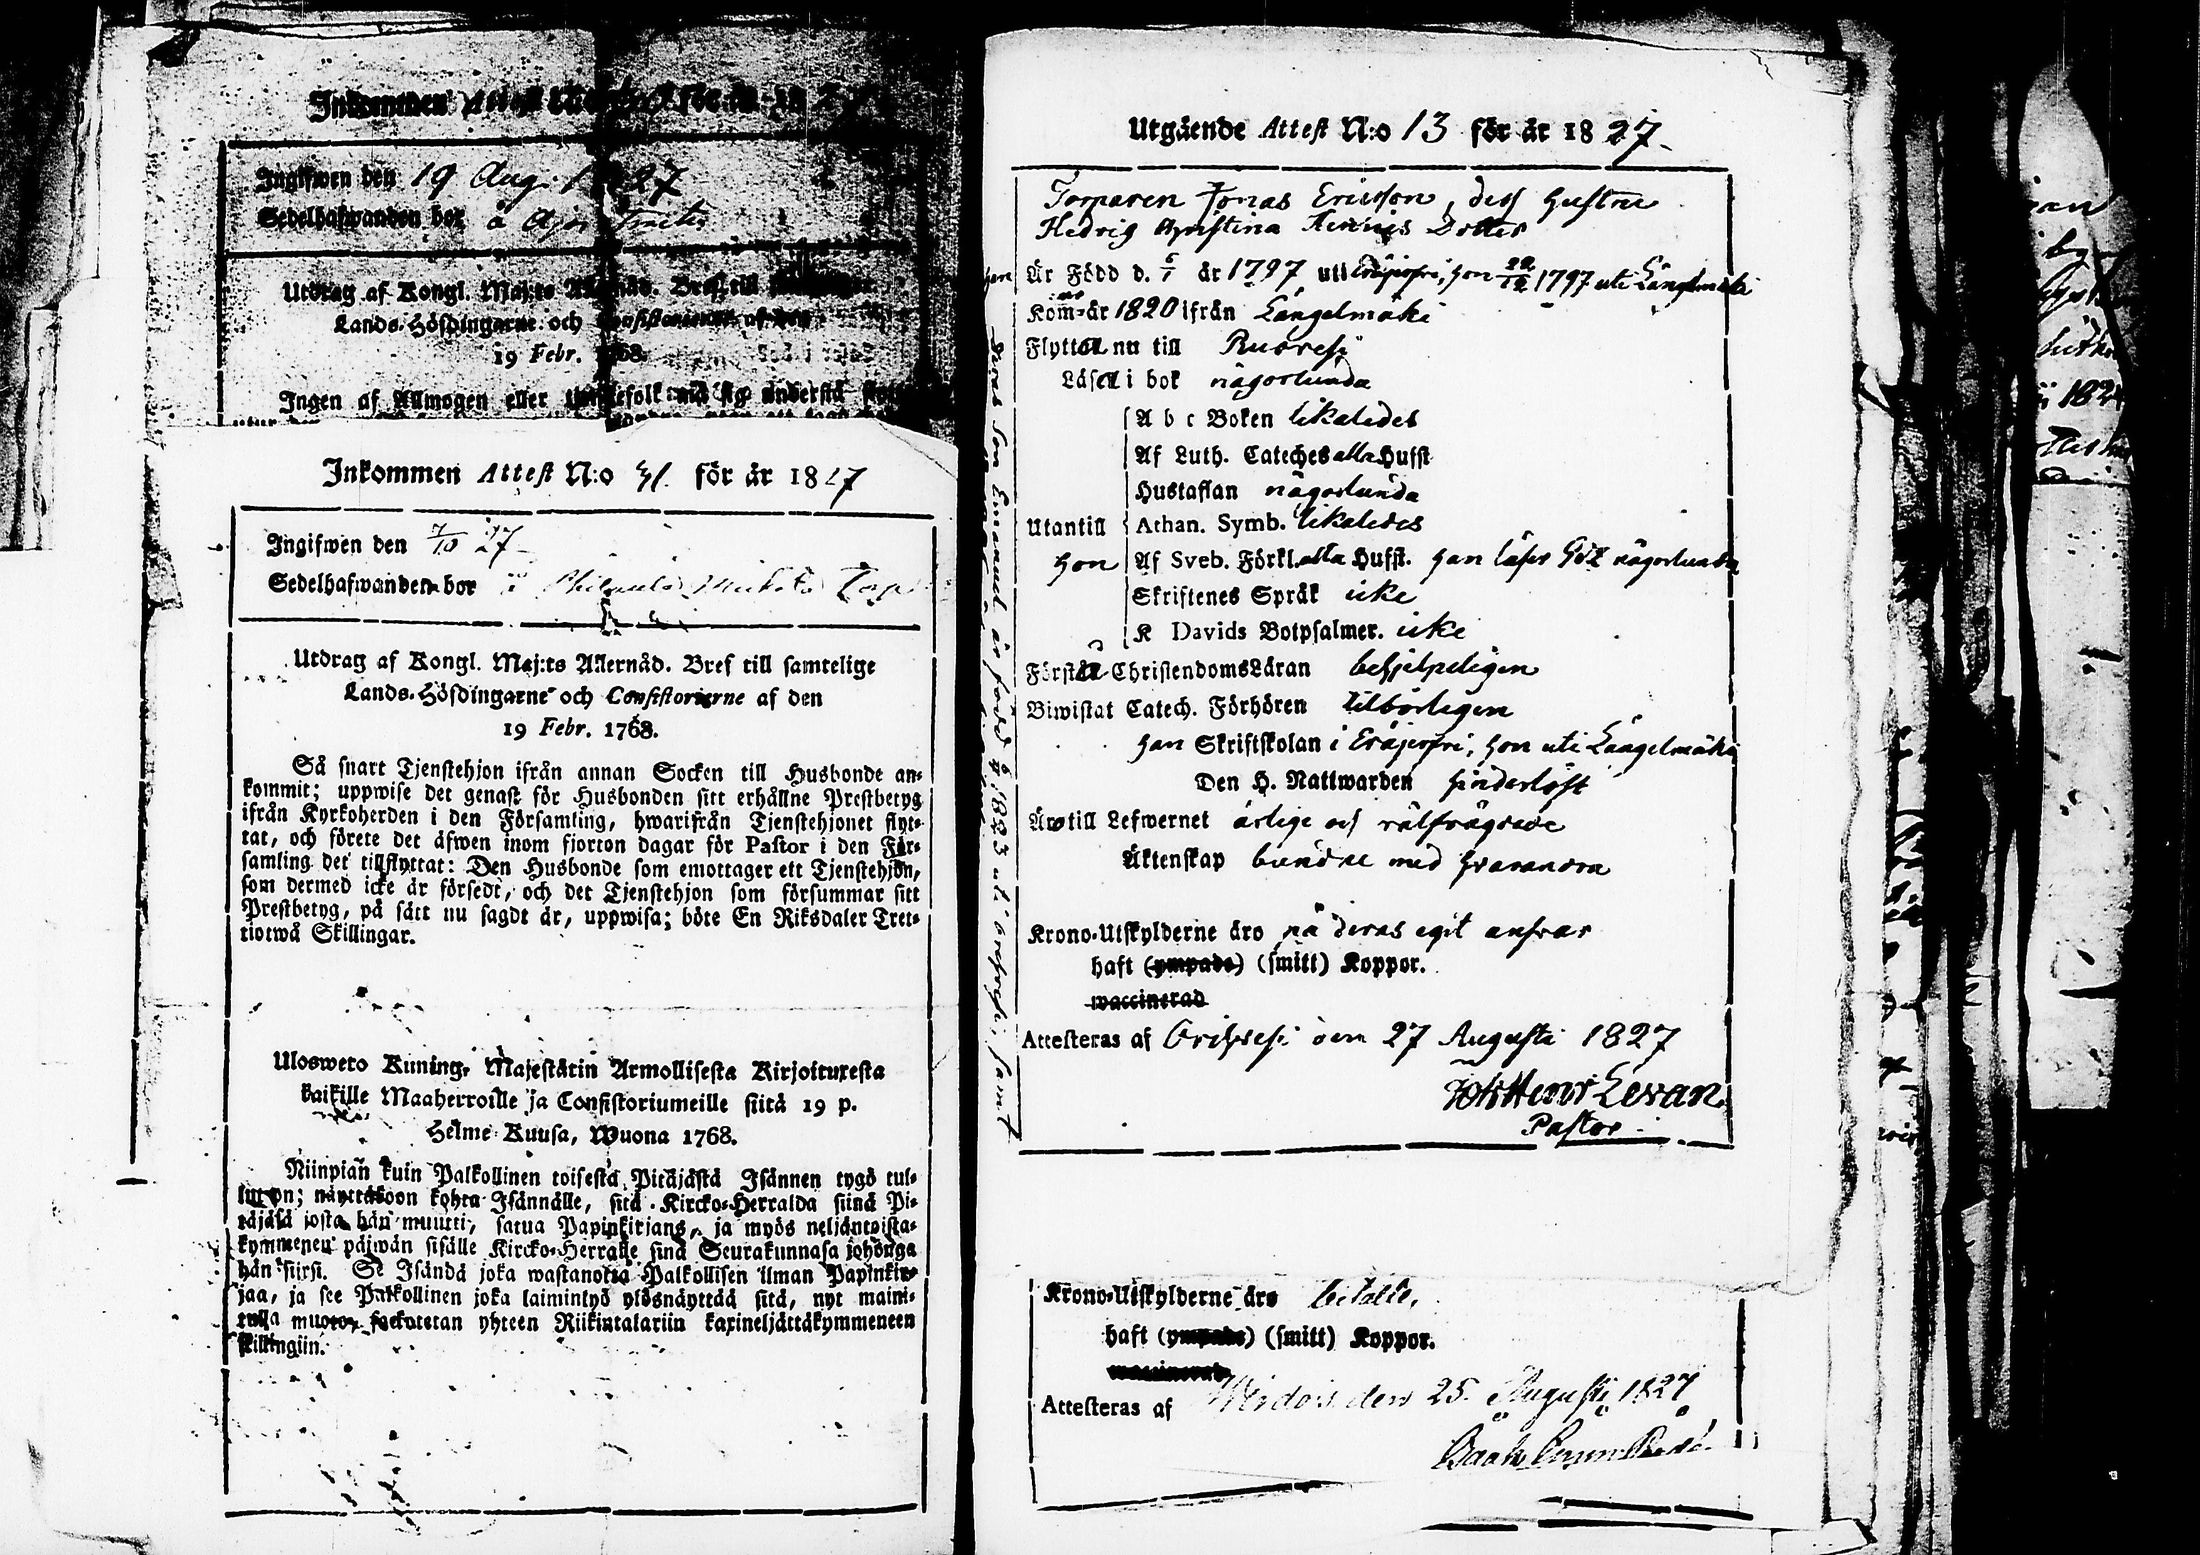 Ingifwen den 19 Aug: 1827
Sedelhafwanden bor å
Utdrag af Kongl. Maj:ts Allernåd. Bref till
Lands-Höfdingarne och Consistorierne af den
19 Febr. 1768.
Ingen af Allmogen eller tjenstefolk må sig understå
Inkommen Attest N:o 31. för år 1827
Ingifwen den 7/10 27
Sedelhafwanden bor i
Utdrag af Kongl. Maj:ts Allernåd. Bref till samtelige
Lands-Höfdingarne och Consistorierne af den
19 Febr. 1768.
Så snart Tjenstehjon ifrån annan Socken till Husbonde an-
kommit; uppwise det genast för Husbonden sitt erhållne Prestbetyg
ifrån Kyrkoherden i den Församling, hwarifrån Tjenstehjonet flyt-
tat, och förete det äfwen inom fjorton dagar för Pastor i den För-
samling det tillflyttat: Den Husbonde som emottager ett Tjenstehjon,
som dermed icke är försedt, och det Tjenstehjon som försummar sitt
Prestbetyg, på sätt nu sagdt är, uppwisa; böte En Riksdaler Tret-
tiotwå Skillingar.
Ulosweto Kuning. Majestätin Armollisesta Kirjoituxesta
kaikille Maaherroille ja Consistoriumeille siitä 19 p.
Helme Kuusa, Wuona 1768.
Niinpian kuin Palkollinen toisesta Pitäjästä Isännen tygö tul-
lut on; näyttäköön kohta Isännälle, sitä Kircko-Herralda siinä Pi-
täjäsä josta hän muutti, satua Papinkirjans, ja myös neljäntoista-
kymmenen päiwän sisälle Kircko-Herralle sinä Seurakunnasa johonga
hän siirsi. Se Isändä joka wastanottä Palkollisen ilman Papinkir-
jaa, ja see Palkollinen joka laiminlyö ylösnäyttää sitä, nyt maini-
tulla muotoa sackotetan yhteen Riikintalariin kaxineljättäkymmeneen
skillingiin.
Utgående Attest N:o 13 för år 1827.
Torparen Jonas Ericsson, dess Hustru
Hedvig Christina Hennis Dotter
han Är Född d. 6/1 år 1797, uti Eräjerfvi, hon 22/12 1797 uti Längelmäki
Kom år 1820 ifrån Längelmäki
Flytta nu till Ruovesi
Läsa i bok någorlunda
A b c Boken likaledes
Af Luth. Cateches alla Hufst
Hustaflan någorlunda
Utantill Athan. Symb. likaledes
hon Af Sveb. Förkl. alla Hufst. han läser Göz någorlunda
Skriftenes Språk icke
K Davids Botpsalmer. icke
Förstå Christendoms Läran behjelpeligen
Biwistat Catech. Förhören tilbörligen
han Skriftskolan i Eräjerfvi, hon uti Längelmäki
Den H. Nattwarden hinderlöst
Äro till Lefwernet ärlige och välfrägdade
Äktenskap bundne med hvarandra
Krono-Utskylderne äro på deras eget ansvar
haft (ympade) (smitt) Koppor.
waccinerad
Attesteras af Orihvesi den 27 Augusti 1827
Joh Henr Levan.
Pastor
Deras Son Emanuel är född 1823 uti Orihvesi, samt
Krono-Utskylderne äro betalte.
haft (ympade) (smitt) Koppor.
waccinerad
Attesteras af Wirdois den 25. Augusti 1827